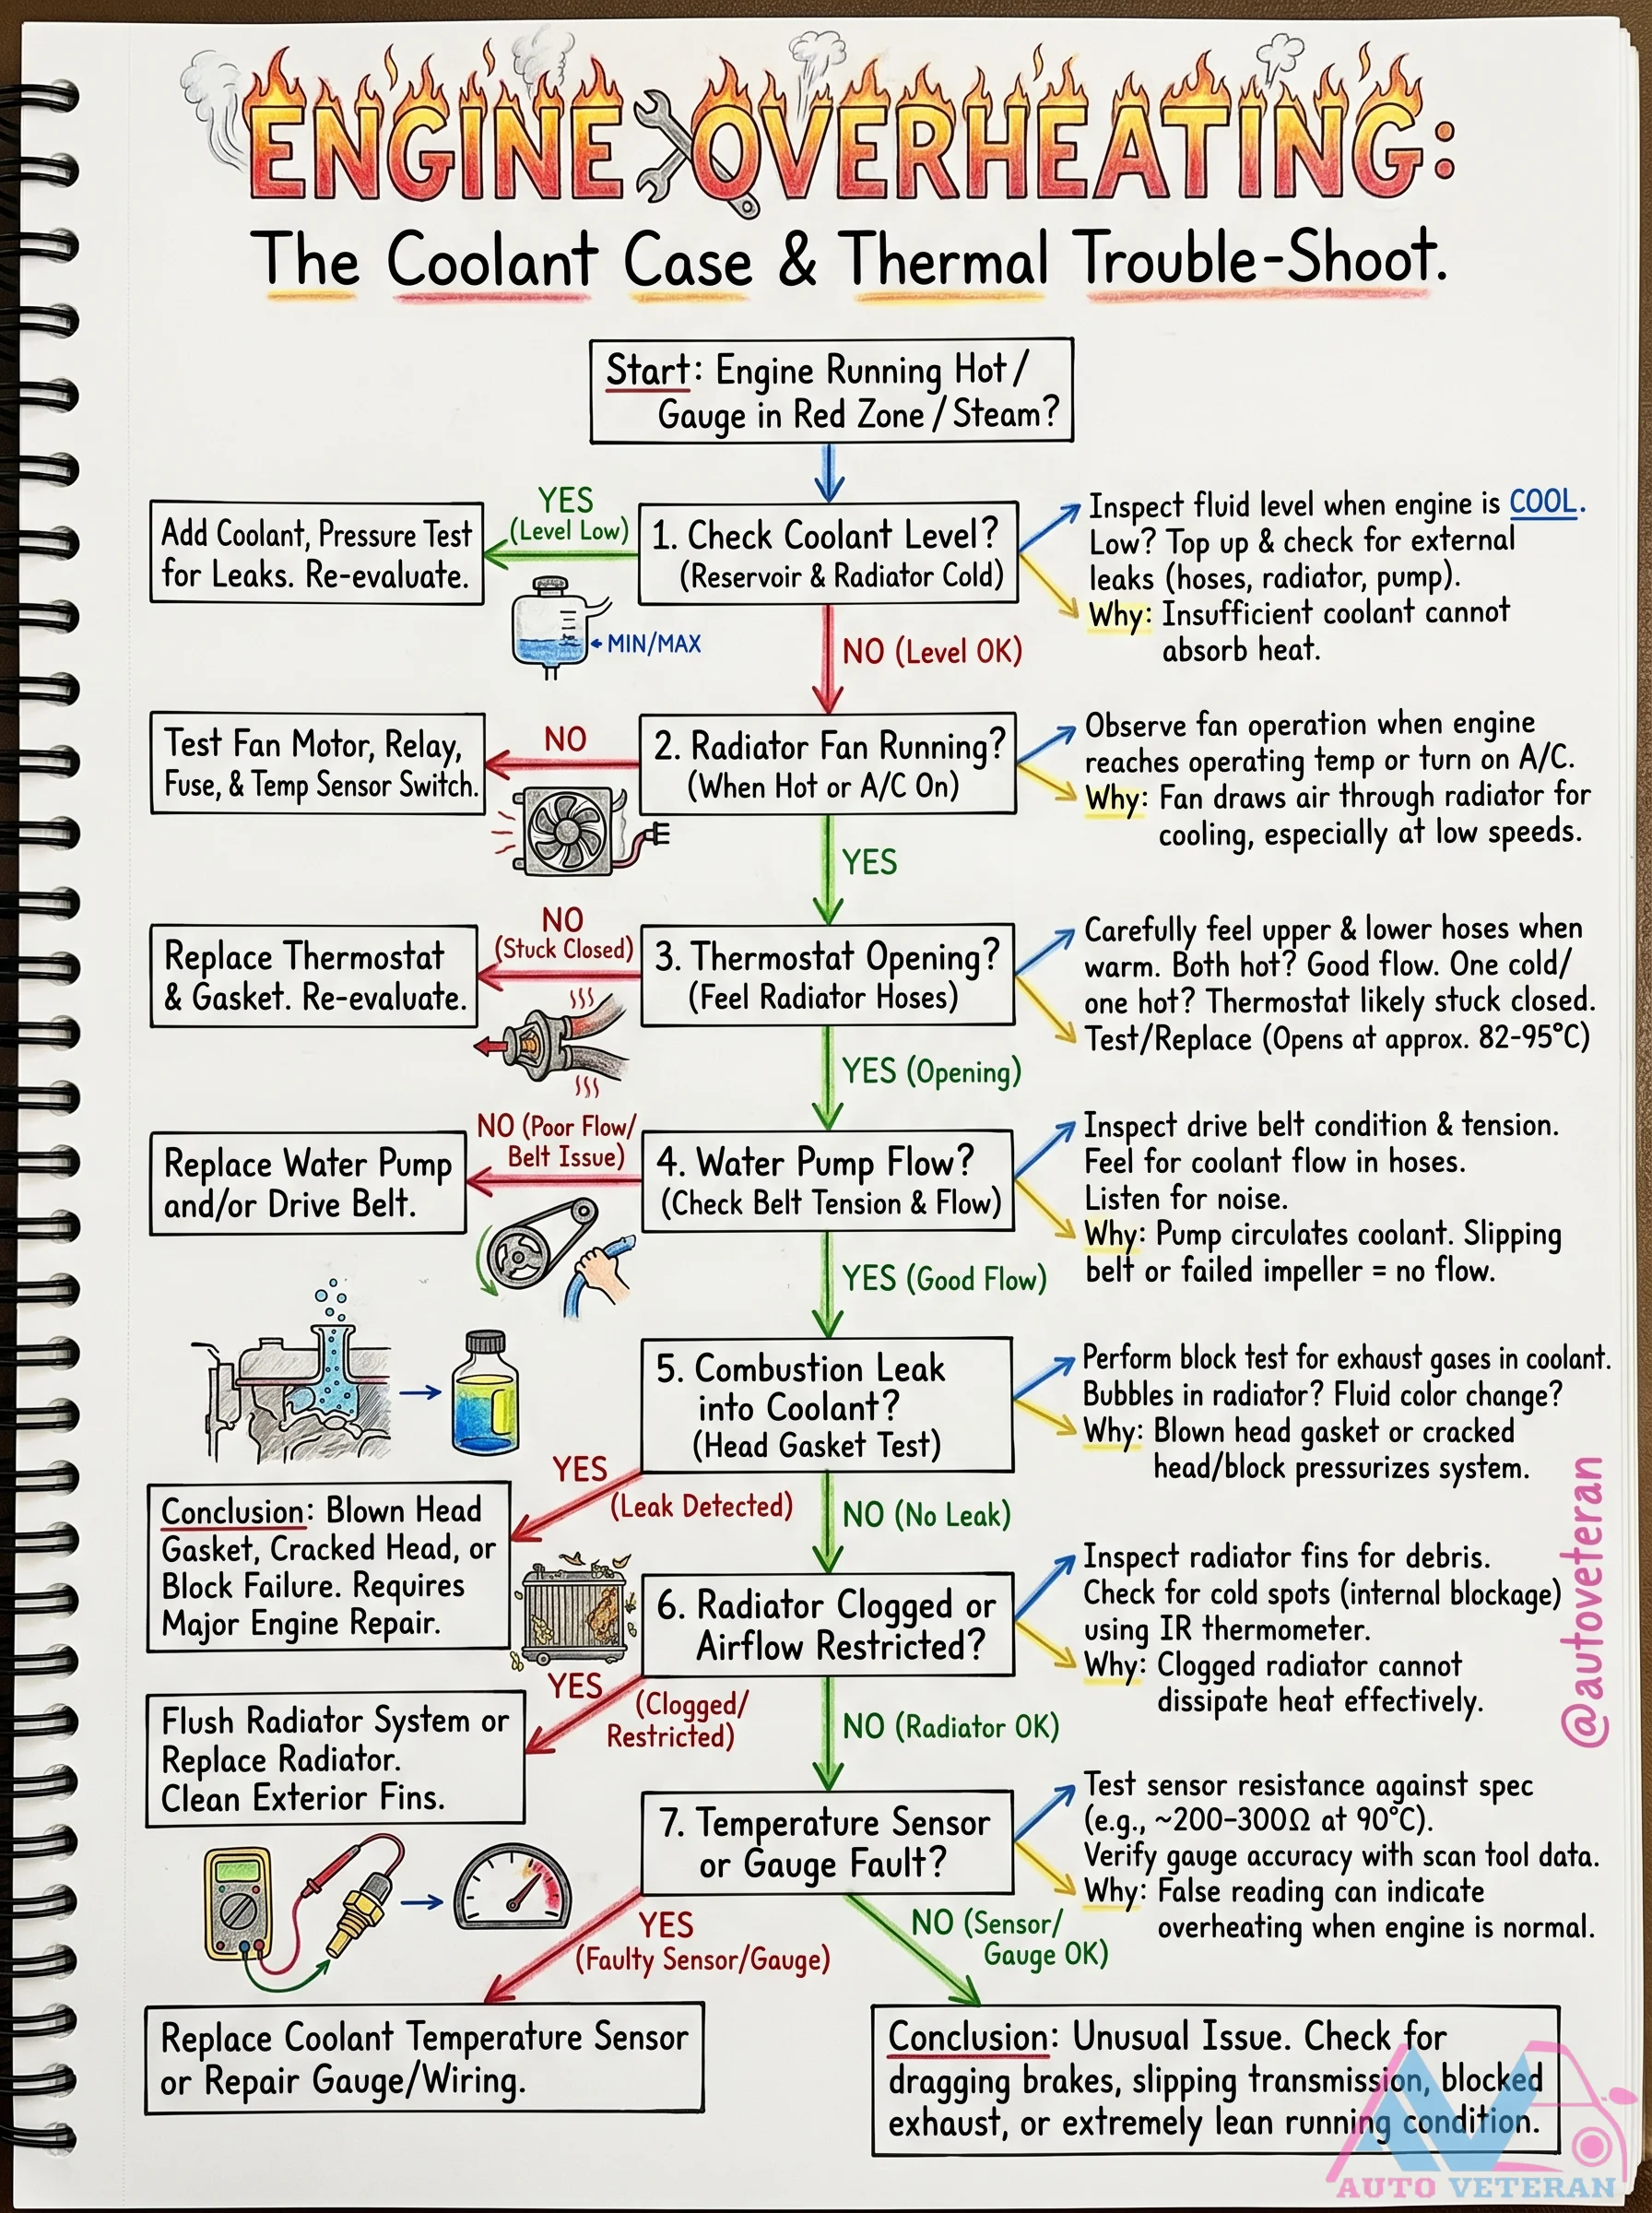 ENGINE OVERHEATING:
The Coolant Case & Thermal Trouble-Shoot.
Start: Engine Running Hot /
Gauge in Red Zone / Steam?
YES
(Level Low)
Add Coolant, Pressure Test
for Leaks. Re-evaluate.
1. Check Coolant Level?
(Reservoir & Radiator Cold)
Inspect fluid level when engine is COOL.
Low? Top up & check for external
leaks (hoses, radiator, pump).
Why: Insufficient coolant cannot
absorb heat.
MIN/MAX
NO (Level OK)
Test Fan Motor, Relay,
Fuse, & Temp Sensor Switch.
NO
2. Radiator Fan Running?
(When Hot or A/C On)
Observe fan operation when engine
reaches operating temp or turn on A/C.
Why: Fan draws air through radiator for
cooling, especially at low speeds.
YES
Replace Thermostat
& Gasket. Re-evaluate.
NO
(Stuck Closed)
3. Thermostat Opening?
(Feel Radiator Hoses)
Carefully feel upper & lower hoses when
warm. Both hot? Good flow. One cold/
one hot? Thermostat likely stuck closed.
Test/Replace (Opens at approx. 82-95°C)
YES (Opening)
Replace Water Pump
and/or Drive Belt.
NO (Poor Flow/
Belt Issue)
4. Water Pump Flow?
(Check Belt Tension & Flow)
Inspect drive belt condition & tension.
Feel for coolant flow in hoses.
Listen for noise.
Why: Pump circulates coolant. Slipping
belt or failed impeller = no flow.
YES (Good Flow)
5. Combustion Leak
into Coolant?
(Head Gasket Test)
Perform block test for exhaust gases in coolant.
Bubbles in radiator? Fluid color change?
Why: Blown head gasket or cracked
head/block pressurizes system.
YES
(Leak Detected)
NO (No Leak)
Conclusion: Blown Head
Gasket, Cracked Head, or
Block Failure. Requires
Major Engine Repair.
6. Radiator Clogged or
Airflow Restricted?
Inspect radiator fins for debris.
Check for cold spots (internal blockage)
using IR thermometer.
Why: Clogged radiator cannot
dissipate heat effectively.
@autoveteran
YES
(Clogged/
Restricted)
NO (Radiator OK)
Flush Radiator System or
Replace Radiator.
Clean Exterior Fins.
7. Temperature Sensor
or Gauge Fault?
Test sensor resistance against spec
(e.g., ~200-300Ω at 90°C).
Verify gauge accuracy with scan tool data.
Why: False reading can indicate
overheating when engine is normal.
YES
(Faulty Sensor/Gauge)
NO (Sensor/
Gauge OK)
Replace Coolant Temperature Sensor
or Repair Gauge/Wiring.
Conclusion: Unusual Issue. Check for
dragging brakes, slipping transmission, blocked
exhaust, or extremely lean running condition.
AV
AUTO VETERAN